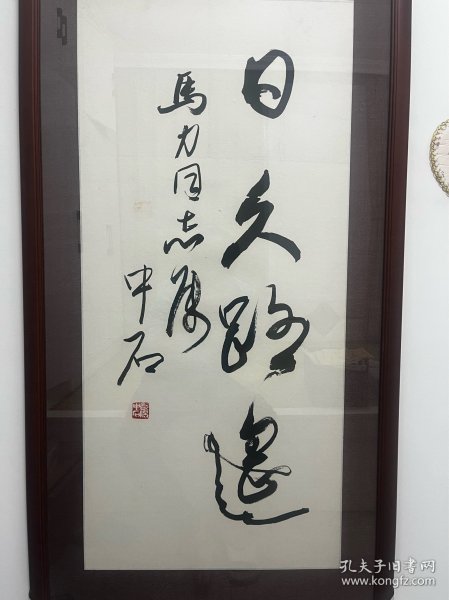 日久路遥
馬力同志属
中石
孔夫子旧书网
www.kongfz.com